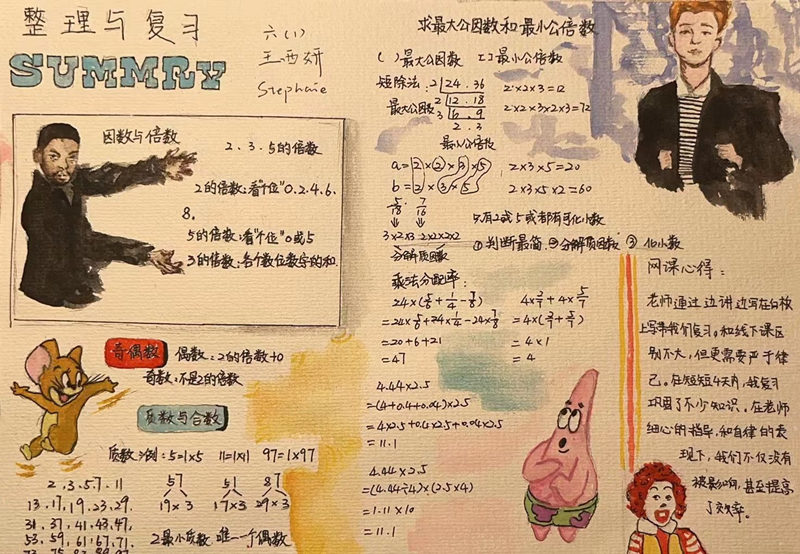 整理与复习
SUMMRY
六(1)
王西妍
Stephanie
因数与倍数
2、3、5的倍数
2的倍数:看"个位"0.2.4.6.
8.
5的倍数:看"个位"0或5
3的倍数:各个数位数字的和
奇偶数
偶数:2的倍数+0
奇数:不是2的倍数
质数与合数
质数:例:5=1×5 11=1×11 97=1×97
2.3.5.7.11
13.17.19.23.29.
31.37.41.43.47.
53.59.61.67.71.
57 51 87
19×3 17×3 29×3
2最小质数,唯一一个偶数
求最大公因数和最小公倍数
( )最大公因数 [ ]最小公倍数
短除法: 2 24.36 2×2×3=12
最大公因数 2 12.18 2×2×3×2×3=72
3 6.9
2.3
最小公倍数
a=2×2×3×5 2×3×5=20
b=2×3×5 2×3×5×2=60
5/18 7/16
只有2或5或都有可化小数
3×2×3 2×2×2×2
①判断最简 ②分解质因数 ③化小数
分解质因数
乘法分配率:
24×(5/6+1/4-7/8)
=24×5/6+24×1/4-24×7/8
=20+6+21
=47
4×2/7+4×5/7
=4×(2/7+5/7)
=4×1
=4
4.44×2.5
=(4+0.4+0.04)×2.5
=4×2.5+0.4×2.5+0.04×2.5
=11.1
4.44×2.5
=(4.44÷4)×(2.5×4)
=1.11×10
=11.1
网课心得:
老师通过边讲边写在白板
上带我们复习。和线下课区
别不大,但更需要严于律
己。在短短4天内,我复习
巩固了不少知识。在老师
细心的指导,和自律的表
现下,我们不仅没有
被影响,甚至提高
了效率。